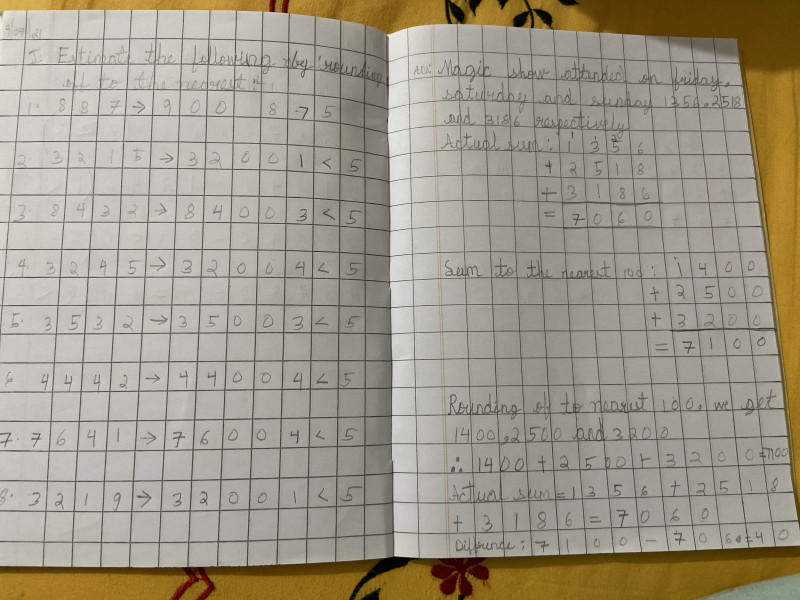 I Estimate the following by rounding
of to the nearest:
1. 887 → 900 8 > 5
2. 3215 → 3200 1 < 5
3. 8432 → 8400 3 < 5
4. 3245 → 3200 4 < 5
5. 3532 → 3500 3 < 5
6. 4442 → 4400 4 < 5
7. 7641 → 7600 4 < 5
8. 3219 → 3200 1 < 5
Magic show attanded on friday,
saturday and sunday 1356, 2518
and 3186 respectively
Actual sum: 1356
+ 2518
+ 3186
= 7060
Sum to the nearest 100: 1400
+ 2500
+ 3200
= 7100
Rounding of to nearest 100, we get
1400, 2500 and 3200
∴ 1400 + 2500 + 3200 = 7100
Actual sum = 1356 + 2518
+ 3186 = 7060
Diffrence: 7100 - 7060 = 40